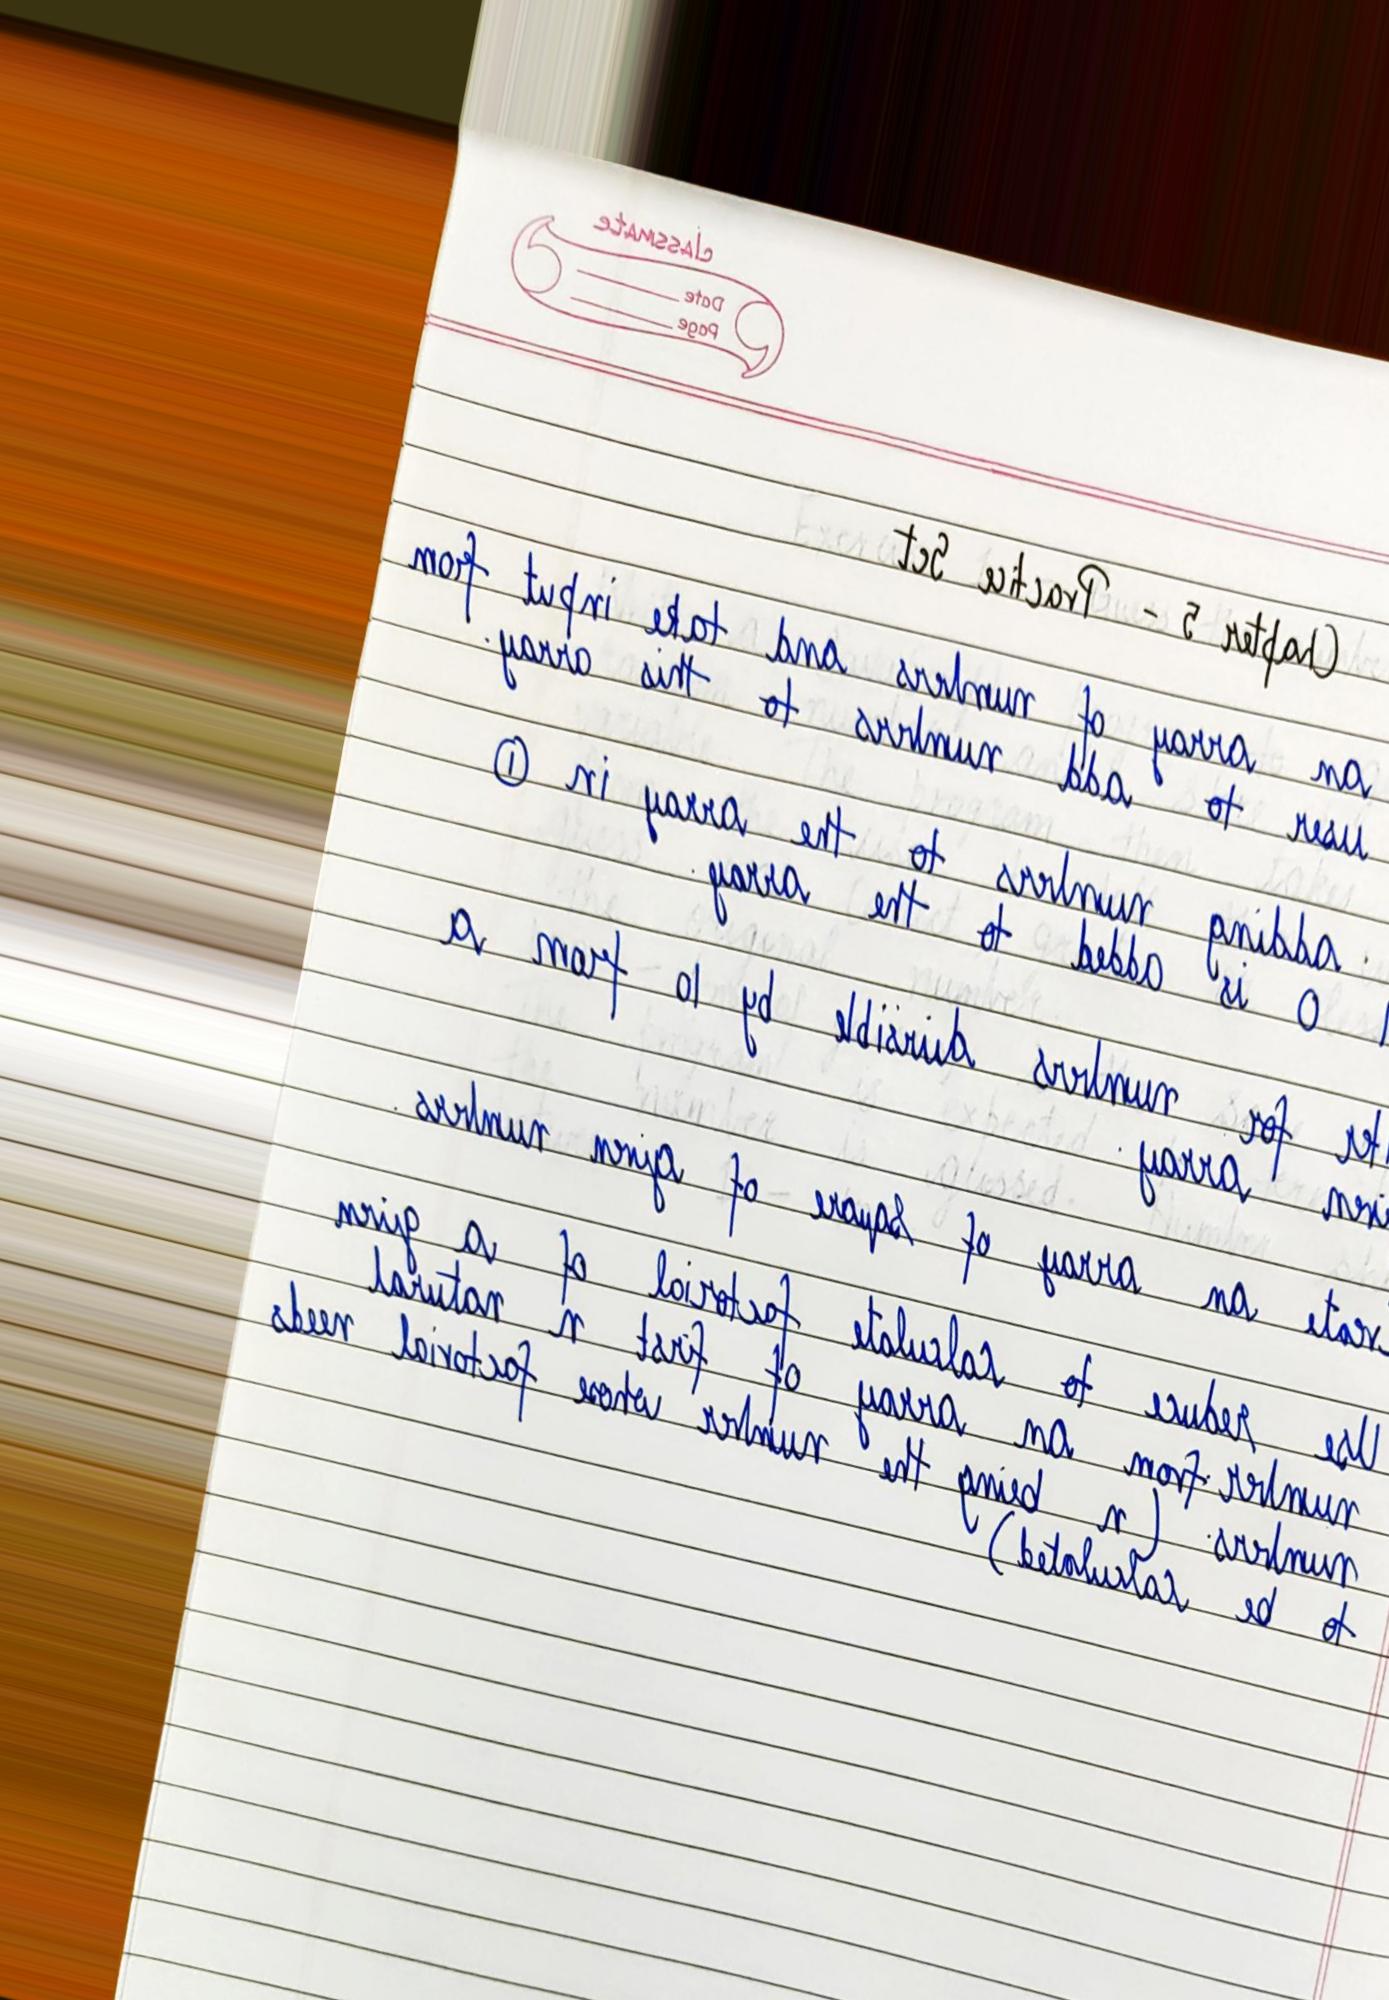 classmate
Date
Page
Chapter 5 - Practice Set
an array of numbers and take input from
user to add numbers to this array.
adding numbers to the array in ①
0 is added to the array.
for numbers divisible by 10 from a
array.
an array of square of given numbers.
Use reduce to calculate factorial of a given
number from an array of first n natural
numbers. (n being the number whose factorial needs
to be calculated)